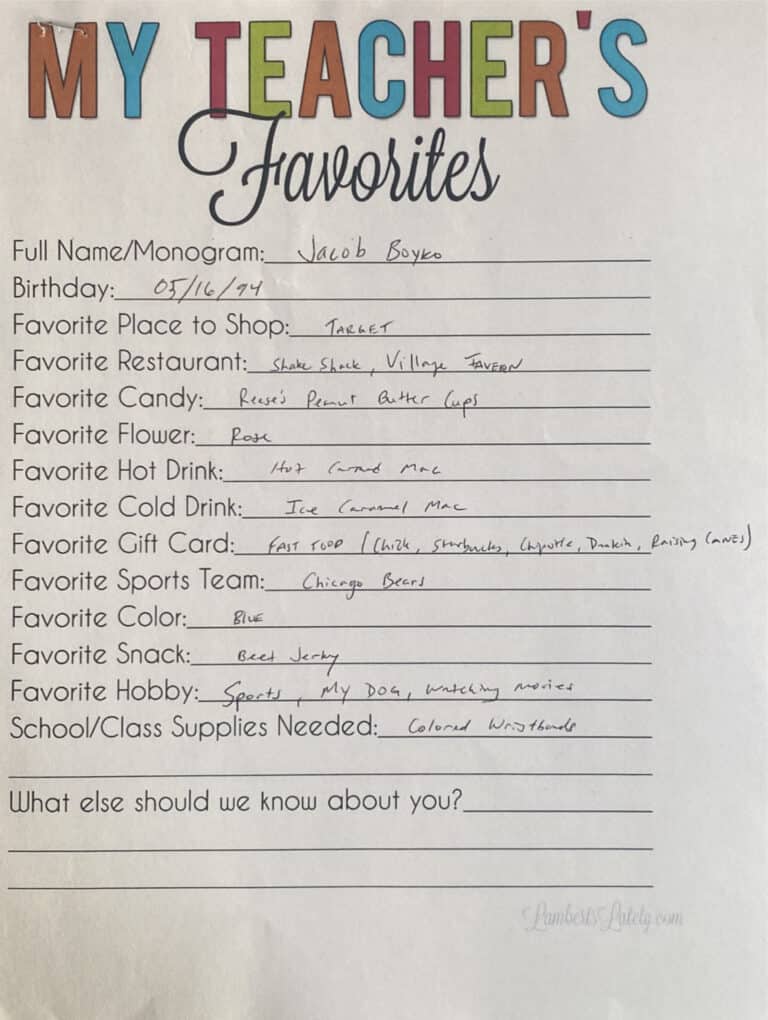 MY TEACHER'S
Favorites
Full Name/Monogram: Jacob Boyko
Birthday: 05/16/94
Favorite Place to Shop: TARGET
Favorite Restaurant: Shake Shack, Village TAVERN
Favorite Candy: Reese's Peanut Butter Cups
Favorite Flower: Rose
Favorite Hot Drink: Hot Caramel Mac
Favorite Cold Drink: Ice Caramel Mac
Favorite Gift Card: FAST FOOD (Chick, Starbucks, Chipotle, Dunkin, Raising CANES)
Favorite Sports Team: Chicago Bears
Favorite Color: BLUE
Favorite Snack: Beef Jerky
Favorite Hobby: Sports, My DOG, watching movies
School/Class Supplies Needed: Colored Wristbands
What else should we know about you?
LambertsLately.com